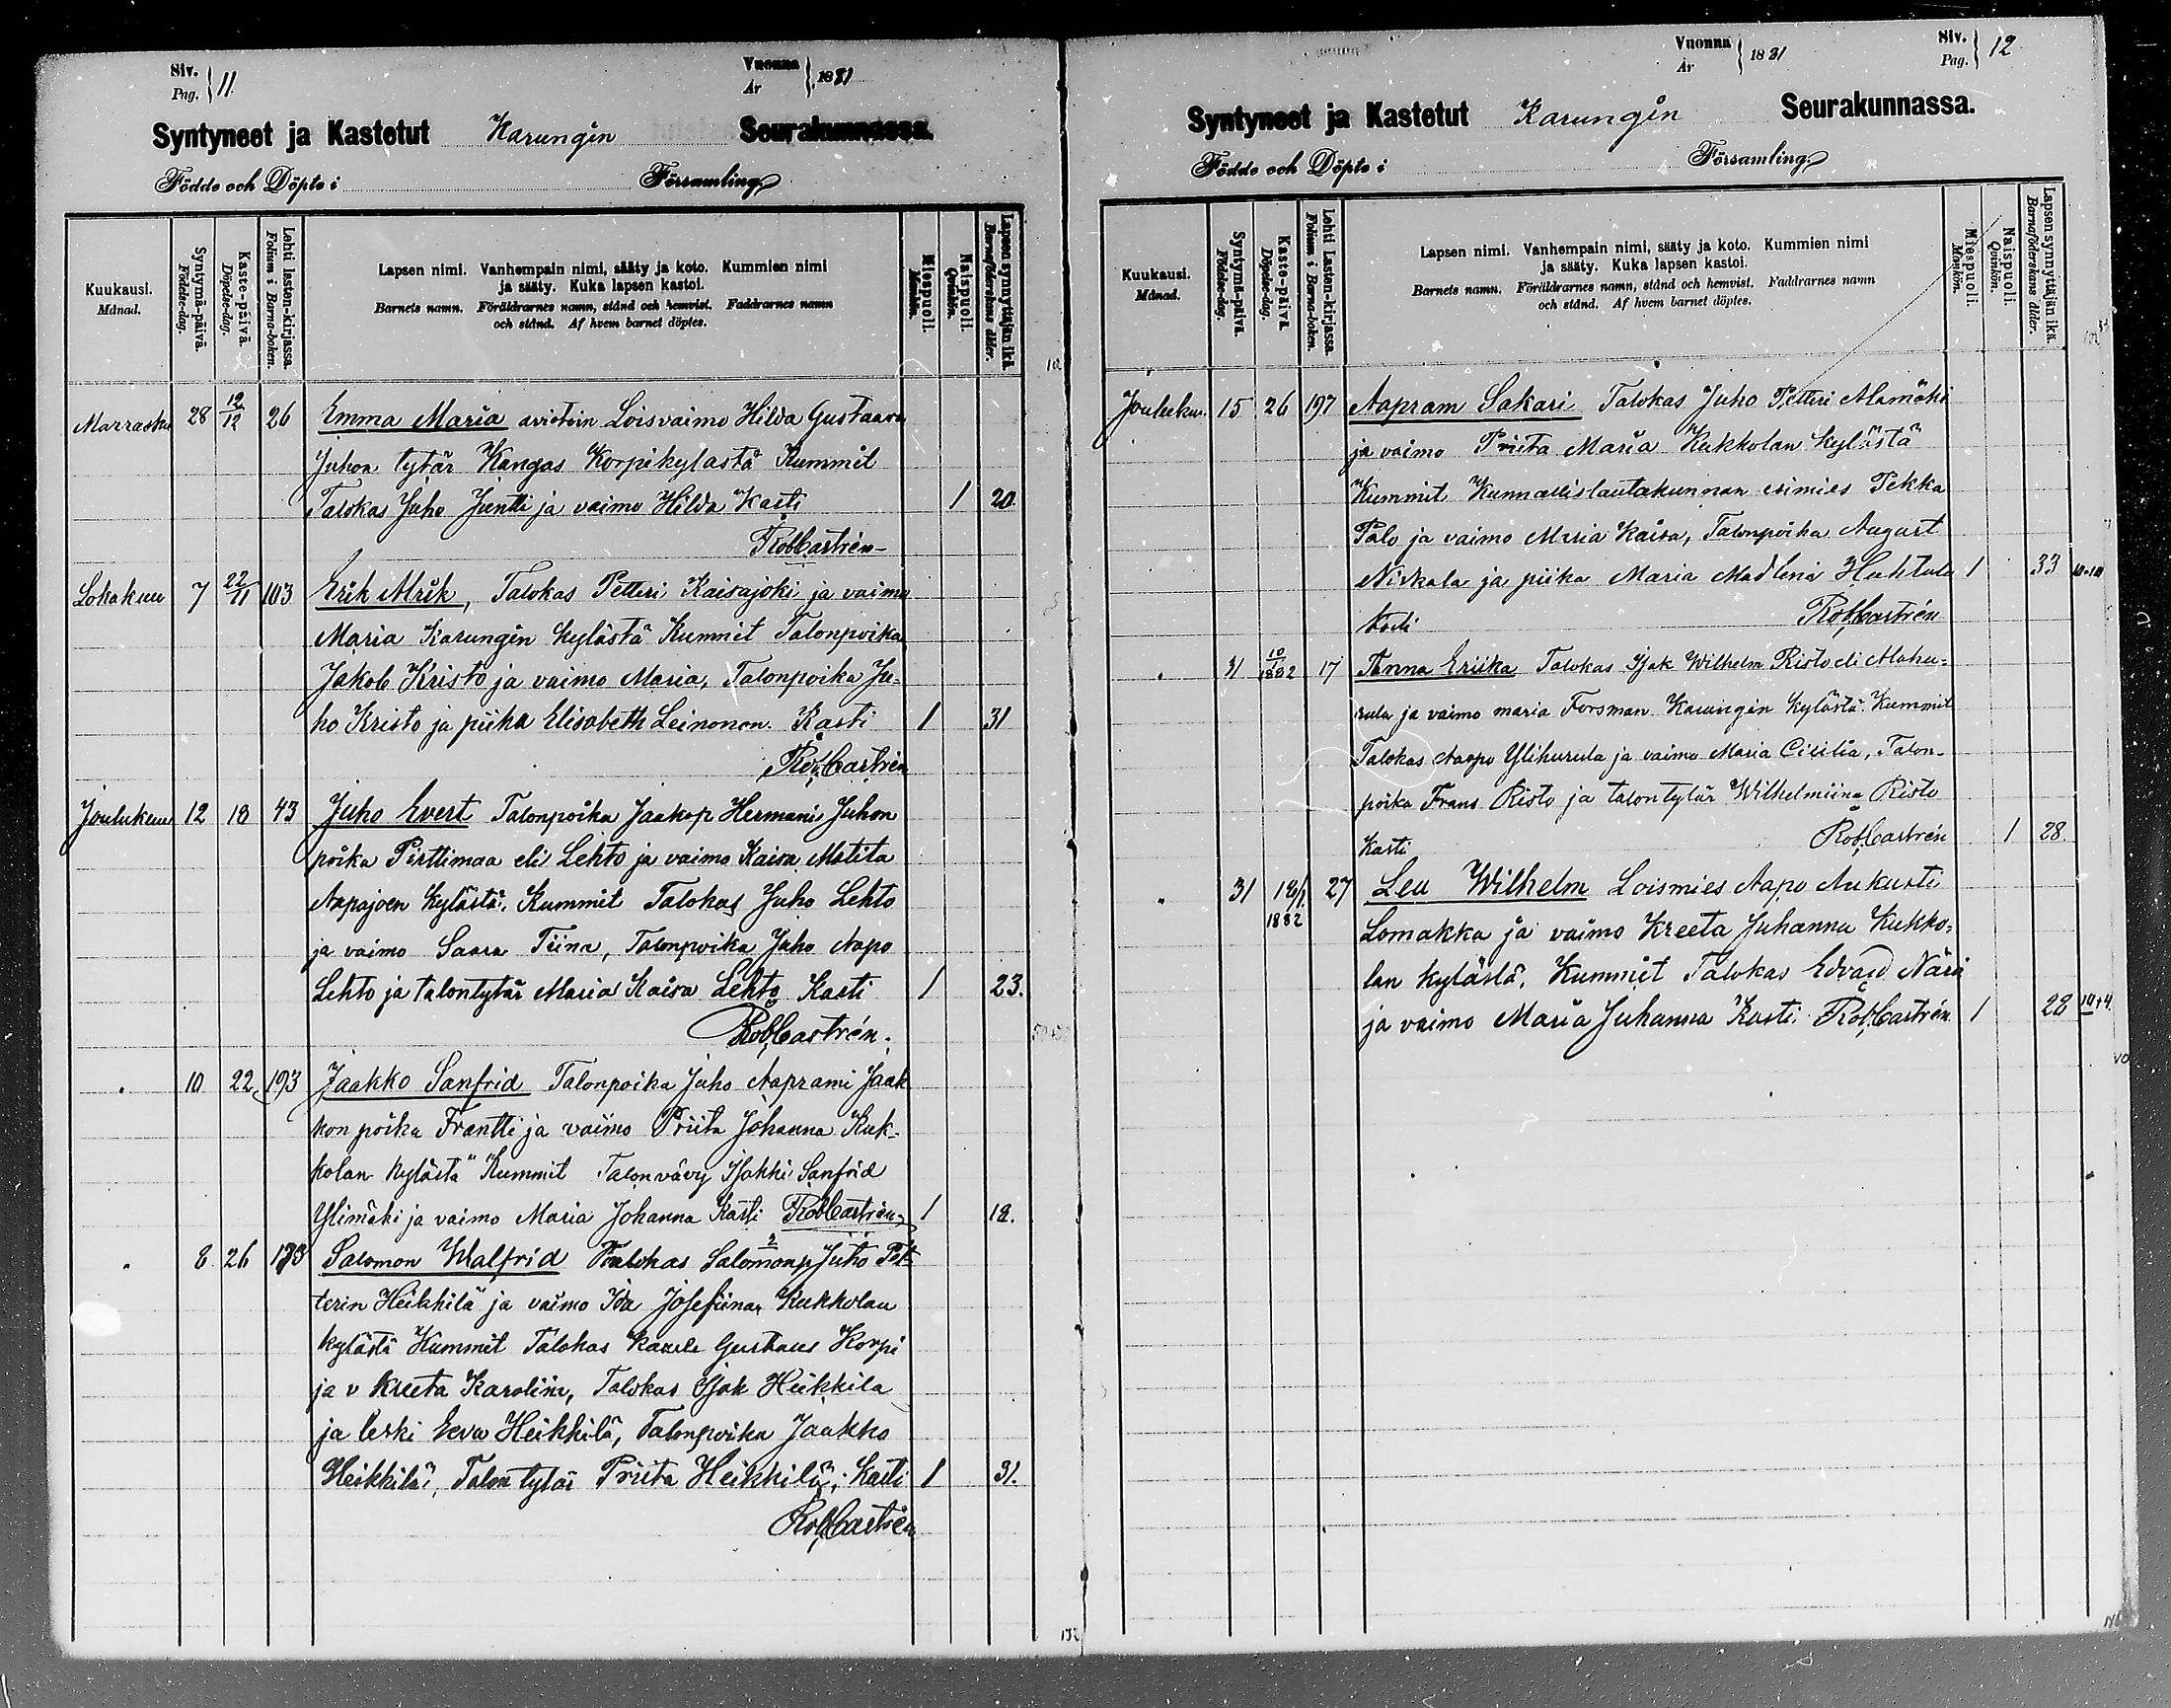 Siv. Pag. } 11. Vuonna År } 1881
Syntyneet ja Kastetut Karungin Seurakunnassa.
Födde och Döpte i Församling.
Kuukausi. Månad.
Syntymä-päivä. Födelse-dag.
Kaste-päivä. Döpelse-dag.
Lehti lasten-kirjassa. Folium i Barna-boken.
Lapsen nimi. Vanhempain nimi, sääty ja koto. Kummien nimi
ja sääty. Kuka lapsen kastoi.
Barnets namn. Föräldrarnes namn, stånd och hemvist. Faddrarnes namn
och stånd. Af hvem barnet döptes.
Miespuoli. Mankön.
Naispuoli. Qvinkön.
Lapsen synnyttäjän ikä. Barnaföderskans ålder.
Marrasku 28 12/12 26 Emma Maria aviotoin Loisvaimo Hilda Gustaava
Juhon tytär Kangas Korpikylastä Kummit
Talokas Juho Juntti ja vaimo Hilda Kasti 1 20.
Rob Castrén
Lokakuu 7 22/11 103 Erik Alrik, Talokas Petteri Kaisajoki ja vaimo
Maria Karungin kylästä Kummit Talonpoika
Jakob Kristo ja vaimo Maria, Talonpoika Ju-
ho Kristo ja piika Elisabeth Leinonen. Kasti 1 31
Rob Castrén
Joulukuu 12 18 43 Juho Evert Talonpoika Jaakop Hermani Juhon
poika Perttimaa eli Lehto ja vaimo Kaisa Matita
Aapajoen kylästä. Kummit Talokas Juho Lehto
ja vaimo Saara Tiina, Talonpoika Juho Aapo
Lehto ja talontytär Maria Kaisa Lehto Kasti 1 23.
Rob Castrén.
" 10 22 193 Jaakko Sanfrid Talonpoika Juho Aaprami Jaak
kon poika Frantti ja vaimo Priita Johanna Kuk-
kolan kylästä Kummit Talonvävy Isakki Sanfrid
Ylimäki ja vaimo Maria Johanna Kasti Rob Castrén 1 18.
" 8 26 Salomon Walfrid Talokas Salomonp Juho Pet-
terin Heikkilä ja vaimo Ida Josefiina Kukkolan
kylästä Kummit Talokas Kaarle Gustaus Korpi
ja v Kreeta Karolina, Talokas Isak Heikkila
ja leski Eeva Heikkilä, Talonpoika Jaakko
Heikkilä, Talon tytär Priita Heikkilä; Kasti 1 31.
Rob Castrén
Vuonna År } 1881 Siv. Pag. } 12
Syntyneet ja Kastetut Karungin Seurakunnassa.
Födde och Döpte i Församling.
Kuukausi. Månad.
Syntymä-päivä. Födelse-dag.
Kaste-päivä. Döpelse-dag.
Lehti Lasten-kirjassa. Folium i Barna-boken.
Lapsen nimi. Vanhempain nimi, sääty ja koto. Kummien nimi
ja sääty. Kuka lapsen kastoi.
Barnets namn. Föräldrarnes namn, stånd och hemvist. Faddrarnes namn
och stånd. Af hvem barnet döptes.
Miespuoli. Mankön.
Naispuoli. Qvinkön.
Lapsen synnyttäjän ikä. Barnaföderskans ålder.
Jouluku. 15 26 197 Aapram Sakari Talokas Juho Petteri Alamäki
ja vaimo Priita Maria Kukkolan kylästä
Kummit Kunnallislautakunnan esimies Pekka
Palo ja vaimo Maria Kaisa, Talonpoika August
Niskala ja piika Maria Madlena Huhtala 1 33
Kasti Rob Castrén
" 31 10/1 1882 17 Anna Eriika Talokas Isak Wilhelm Risto eli Alahu-
rula ja vaimo maria Forsman Karungin kylästä. Kummit
Talokas Aapo Ylihurula ja vaimo Maria Cicilia, Talon-
poika Frans Risto ja talontytär Wilhelmiina Risto
Kasti Rob Castrén 1 28.
" 31 18/1 1882 27 Leu Wilhelm Loismies Aapo Aukusti
Lomakka ja vaimo Kreeta Juhanna Kukko-
lan kylästä. Kummit Talokas Edvard Näsi
ja vaimo Maria Juhanna Kasti Rob Castrén 1 28